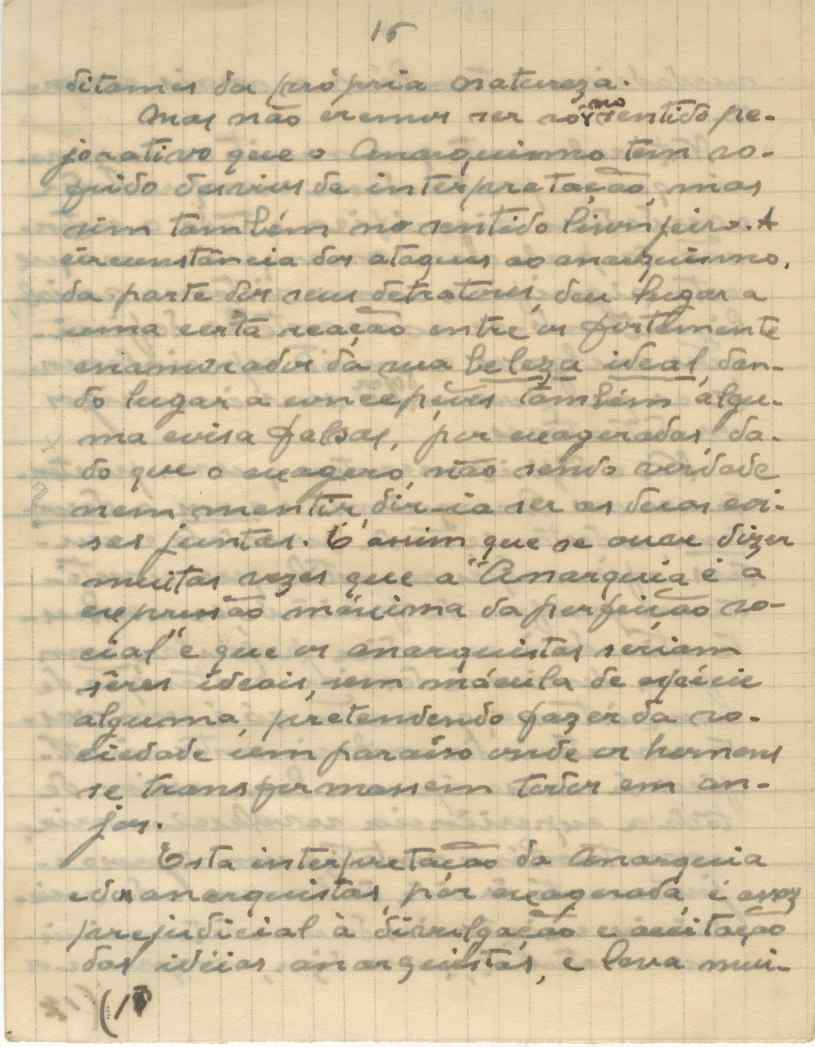 16
ditames da própria natureza.
Mas não cremos ser só no sentido pe-
jorativo que o Anarquismo tem so-
frido desvios de interpretação, mas
sim também no sentido lisonjeiro. A
circunstância dos ataques ao anarquismo,
da parte dos seus detratores, deu lugar a
uma certa reação entre os fortemente
enamorados da sua beleza ideal, dan-
do lugar a concepções também algu-
ma coisa falsas, por exageradas, da-
do que o exagero, não sendo verdade
nem mentir, dir-se-ia ser as duas coi-
sas juntas. É assim que se ouve dizer
muitas vezes que a "Anarquia é a
expressão máxima da perfeição so-
cial" e que os anarquistas seriam
sêres ideais, sem mácula de espécie
alguma, pretendendo fazer da so-
ciedade um paraíso onde os homens
se transformassem todos em an-
jos.
Esta interpretação da Anarquia
e dos anarquistas, por exagerada, é assaz
prejudicial à divulgação e aceitação
das idéias anarquistas, e leva mui-